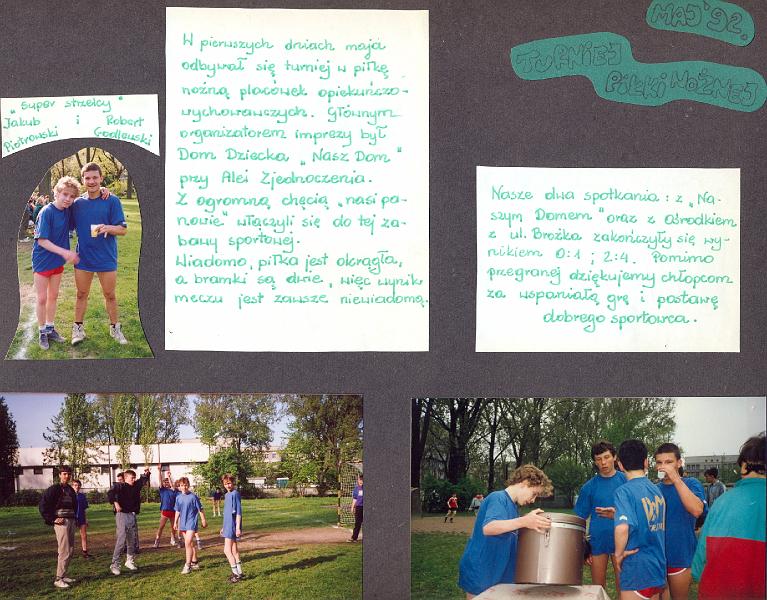 MAJ '92.
TURNIEJ
PIŁKI NOŻNEJ
„Super strzelcy"
Jakub i Robert
Piotrowski Godlewski
W pierwszych dniach maja
odbywał się turniej w piłkę
nożną placówek opiekuńczo-
wychowawczych. Głównym
organizatorem imprezy był
Dom Dziecka „Nasz Dom"
przy Alei Zjednoczenia.
Z ogromną chęcią „nasi pa-
nowie" włączyli się do tej za-
bawy sportowej.
Wiadomo, piłka jest okrągła,
a bramki są dwie, więc wynik
meczu jest zawsze niewiadomą.
Nasze dwa spotkania: z „Na-
szym Domem" oraz z Ośrodkiem
z ul. Brożka zakończyły się wy-
nikiem 0:1 ; 2:4. Pomimo
przegranej dziękujemy chłopcom
za wspaniałą grę i postawę
dobrego sportowca.